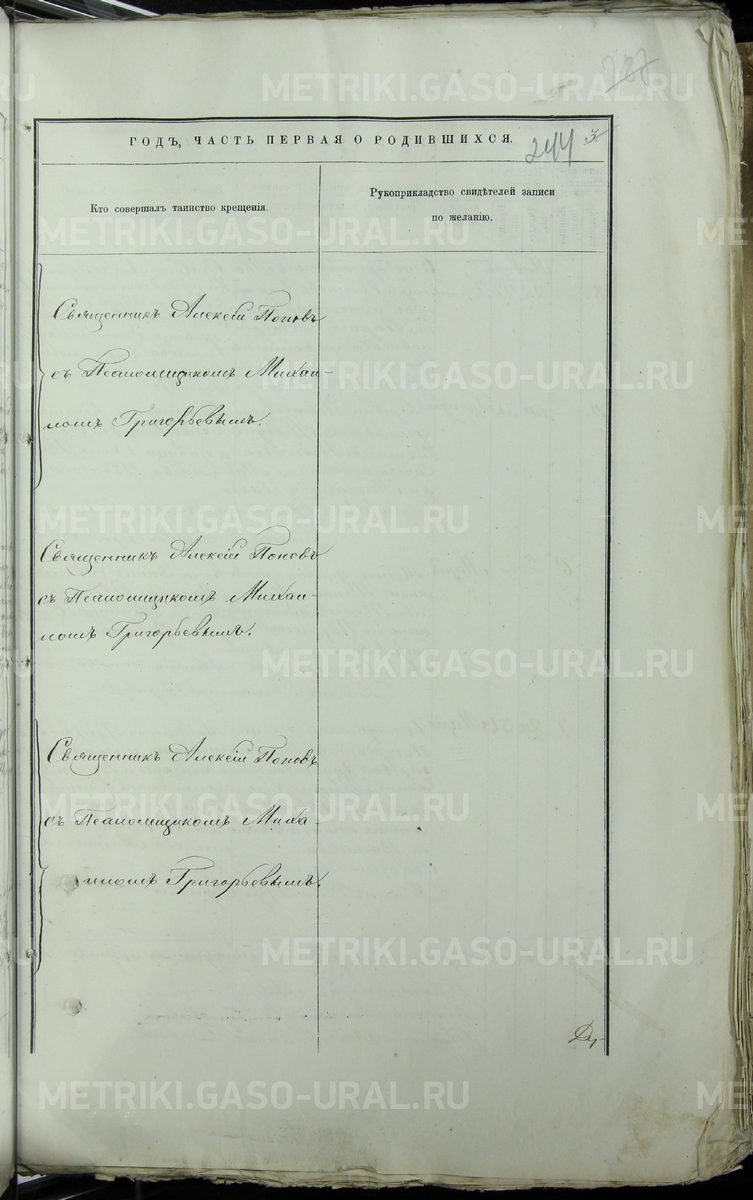 287
ГОДЪ, ЧАСТЬ ПЕРВАЯ О РОДИВШИХСЯ.
244
3.
Кто совершалъ таинство крещенія.
Рукоприкладство свидѣтелей записи
по желанію.
Священникъ Алексій Поповъ
съ Псаломщикомъ Михаи-
ломъ Григорьевымъ.
Священникъ Алексій Поповъ
съ Псаломщикомъ Михаи-
ломъ Григорьевымъ.
Священникъ Алексій Поповъ
съ Псаломщикомъ Миха-
иломъ Григорьевымъ.
METRIKI.GASO-URAL.RU